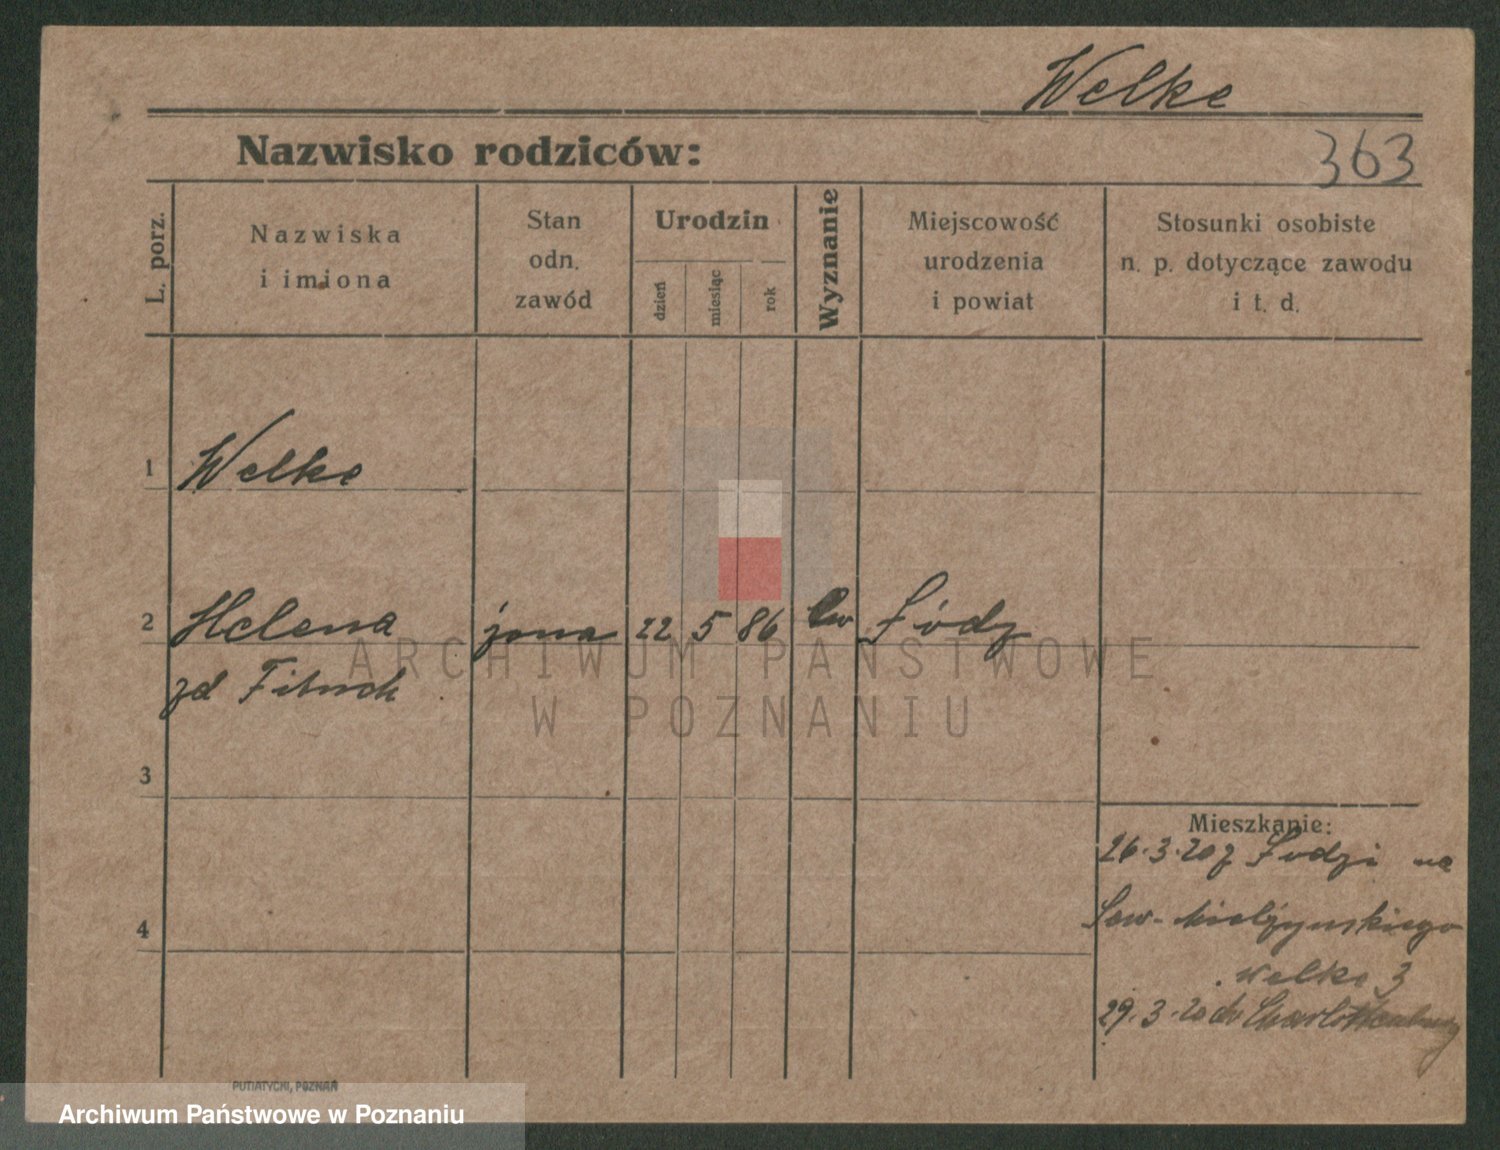 Welke
Nazwisko rodziców:
363
L. porz.
Nazwiska
i imiona
Stan
odn.
zawód
Urodzin
dzień
miesiąc
rok
Wyznanie
Miejscowość
urodzenia
i powiat
Stosunki osobiste
n. p. dotyczące zawodu
i t. d.
1 Welke
2 Helena żona 22 5 86 Ew Łódz
zd
3
4
Mieszkanie:
26.3.20 z Łodzi na
Mielżynskiego
Welke 3
29.3.20 do Charlottenburg
ARCHIWUM PAŃSTWOWE
W POZNANIU
PUTIATYCKI, POZNAŃ
Archiwum Państwowe w Poznaniu